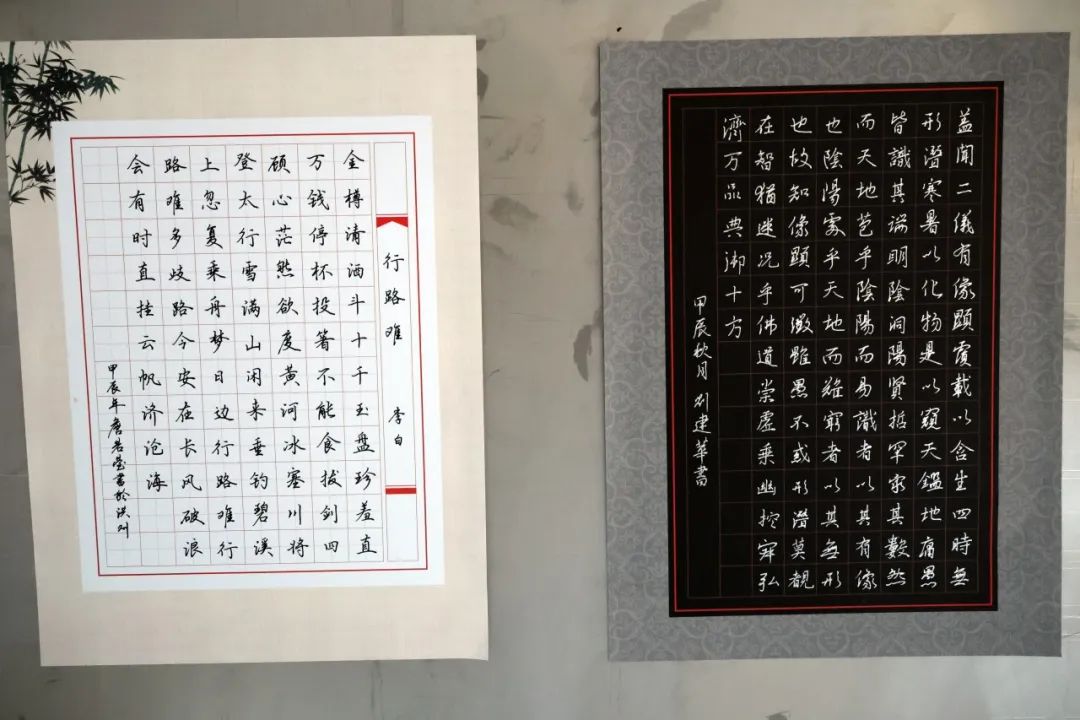 行路难 李白
金樽清酒斗十千玉盘珍羞直
万钱停杯投箸不能食拔剑四
顾心茫然欲度黄河冰塞川将
登太行雪满山闲来垂钓碧溪
上忽复乘舟梦日边行路难行
路难多歧路今安在长风破浪
会有时直挂云帆济沧海
甲辰年唐若莹書於洪州
蓋聞二儀有像顯覆載以含生四時無
形潛寒暑以化物是以窺天鑑地庸愚
皆識其端明陰洞陽賢哲罕窮其數然
而天地苞乎陰陽而易識者以其有像
也陰陽處乎天地而難窮者以其無形
也故知像顯可徵雖愚不惑形潛莫覩
在智猶迷况乎佛道崇虛乘幽控寂弘
濟万品典御十方
甲辰秋月 刘建華書